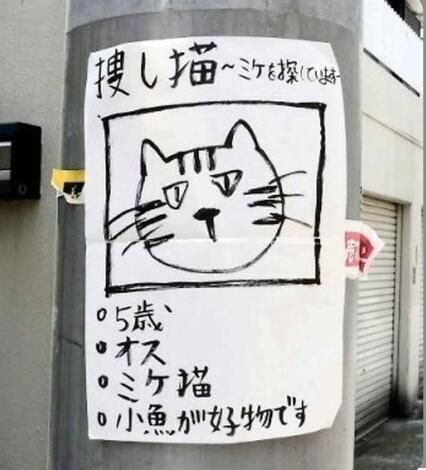 捜し描 ~ミケを探しています~
○5歳、
○オス
○ミケ描
○小魚が好物です